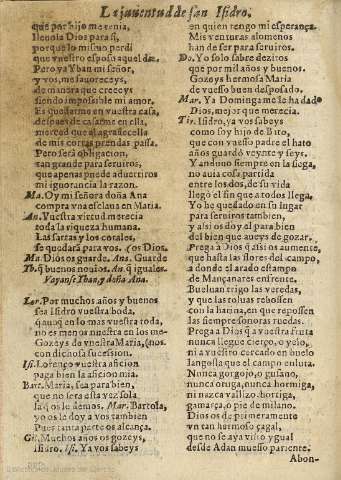 La juventud de san Isidro.
que por hijo me tenia,
lleuola Dios para si,
porque lo mismo perdi
que vuestro esposo aquel dia.
Pero ya Yban mi señor,
y vos, me fauoreceys
de manera que creceys
siendo impossible mi amor.
Es quedarme en vuestra casa,
despues de casarme en ella,
merced que el agradecella
de mis cortas prendas passa.
Pero será obligacion,
tan grande para seruiros,
que apenas puede aduertiros
mi ignorancia la razon.
Ma. Oy mi señora doña Ana
compra vna esclaua en Maria.
An. Vuestra virtud merecia
toda la riqueza humana.
Las sartas y los corales,
se quedarà para vos. Los Dios.
Ma. Dios os guarde. An. Guarde
Yb. q̃ buenos nouios. An. q̃ iguales.
Vayanse Yban, y doña Ana.
Lor. Por muchos años y buenos
sea Isidro vuestra boda,
aunq̃ en lo mas vuestra toda,
no es menos nuestra en los me-
Gozeys de vuestra Maria, (nos.
con dichosa sucession.
Isi. Lorenço vuestra aficion
paga bien la aficion mia.
Bart. Maria, sea para bien,
que no sera esta vez sola
la q̃ os le demos. Mar. Bartola,
yo os le doy a vos tambien
Pues tanta parte os alcança.
Gil. Muchos años os gozeys,
Isidro. Isi. Ya vos sabeys
en quien tengo mi esperança.
Mis venturas alomenos
han de ser para seruiros.
Do. Yo solo sabre deziros
que por mil años y buenos.
Gozeys hermosa Maria
de vuesso buen desposado.
Mar. Ya Dominga me le ha dado
Dios, mejor que merecia.
Tir. Isidro, ya vos sabeys
como soy hijo de Bito,
que con vuesso padre el hato
años guardó veynte y seys.
Y an siempre en la siega,
no auia cosa partida
entre los dos, de su vida
llegò el fin que a todos llega.
Yo he quedado en su lugar
para seruiros tambien,
y assi os doy el para bien
del bien que aueys de gozar.
Prega a Dios q̃ assi os aumente,
que hasta las flores del campo,
a donde el arado estampo
de Mançanares enfrente.
Bueluan trigo las veredas,
y que las toluas rebossen
con la harina, en que reposen
las siempre sonoras ruedas.
Prega a Dios q̃ a vuestra fruta
nunca llegue cierço, o yelo,
ni a vuestro cercado en buelo
langosta que el campo enluta.
Nunca gorgojo, o gusano,
nunca oruga, nunca hormiga,
ni nazca vallizo. hortiga,
gamarça, o pie de milano.
Dios os de primeramente
vn tan hermoso çagal,
que no se aya visto ygual
desde Adan muesso pariente.
Abon-